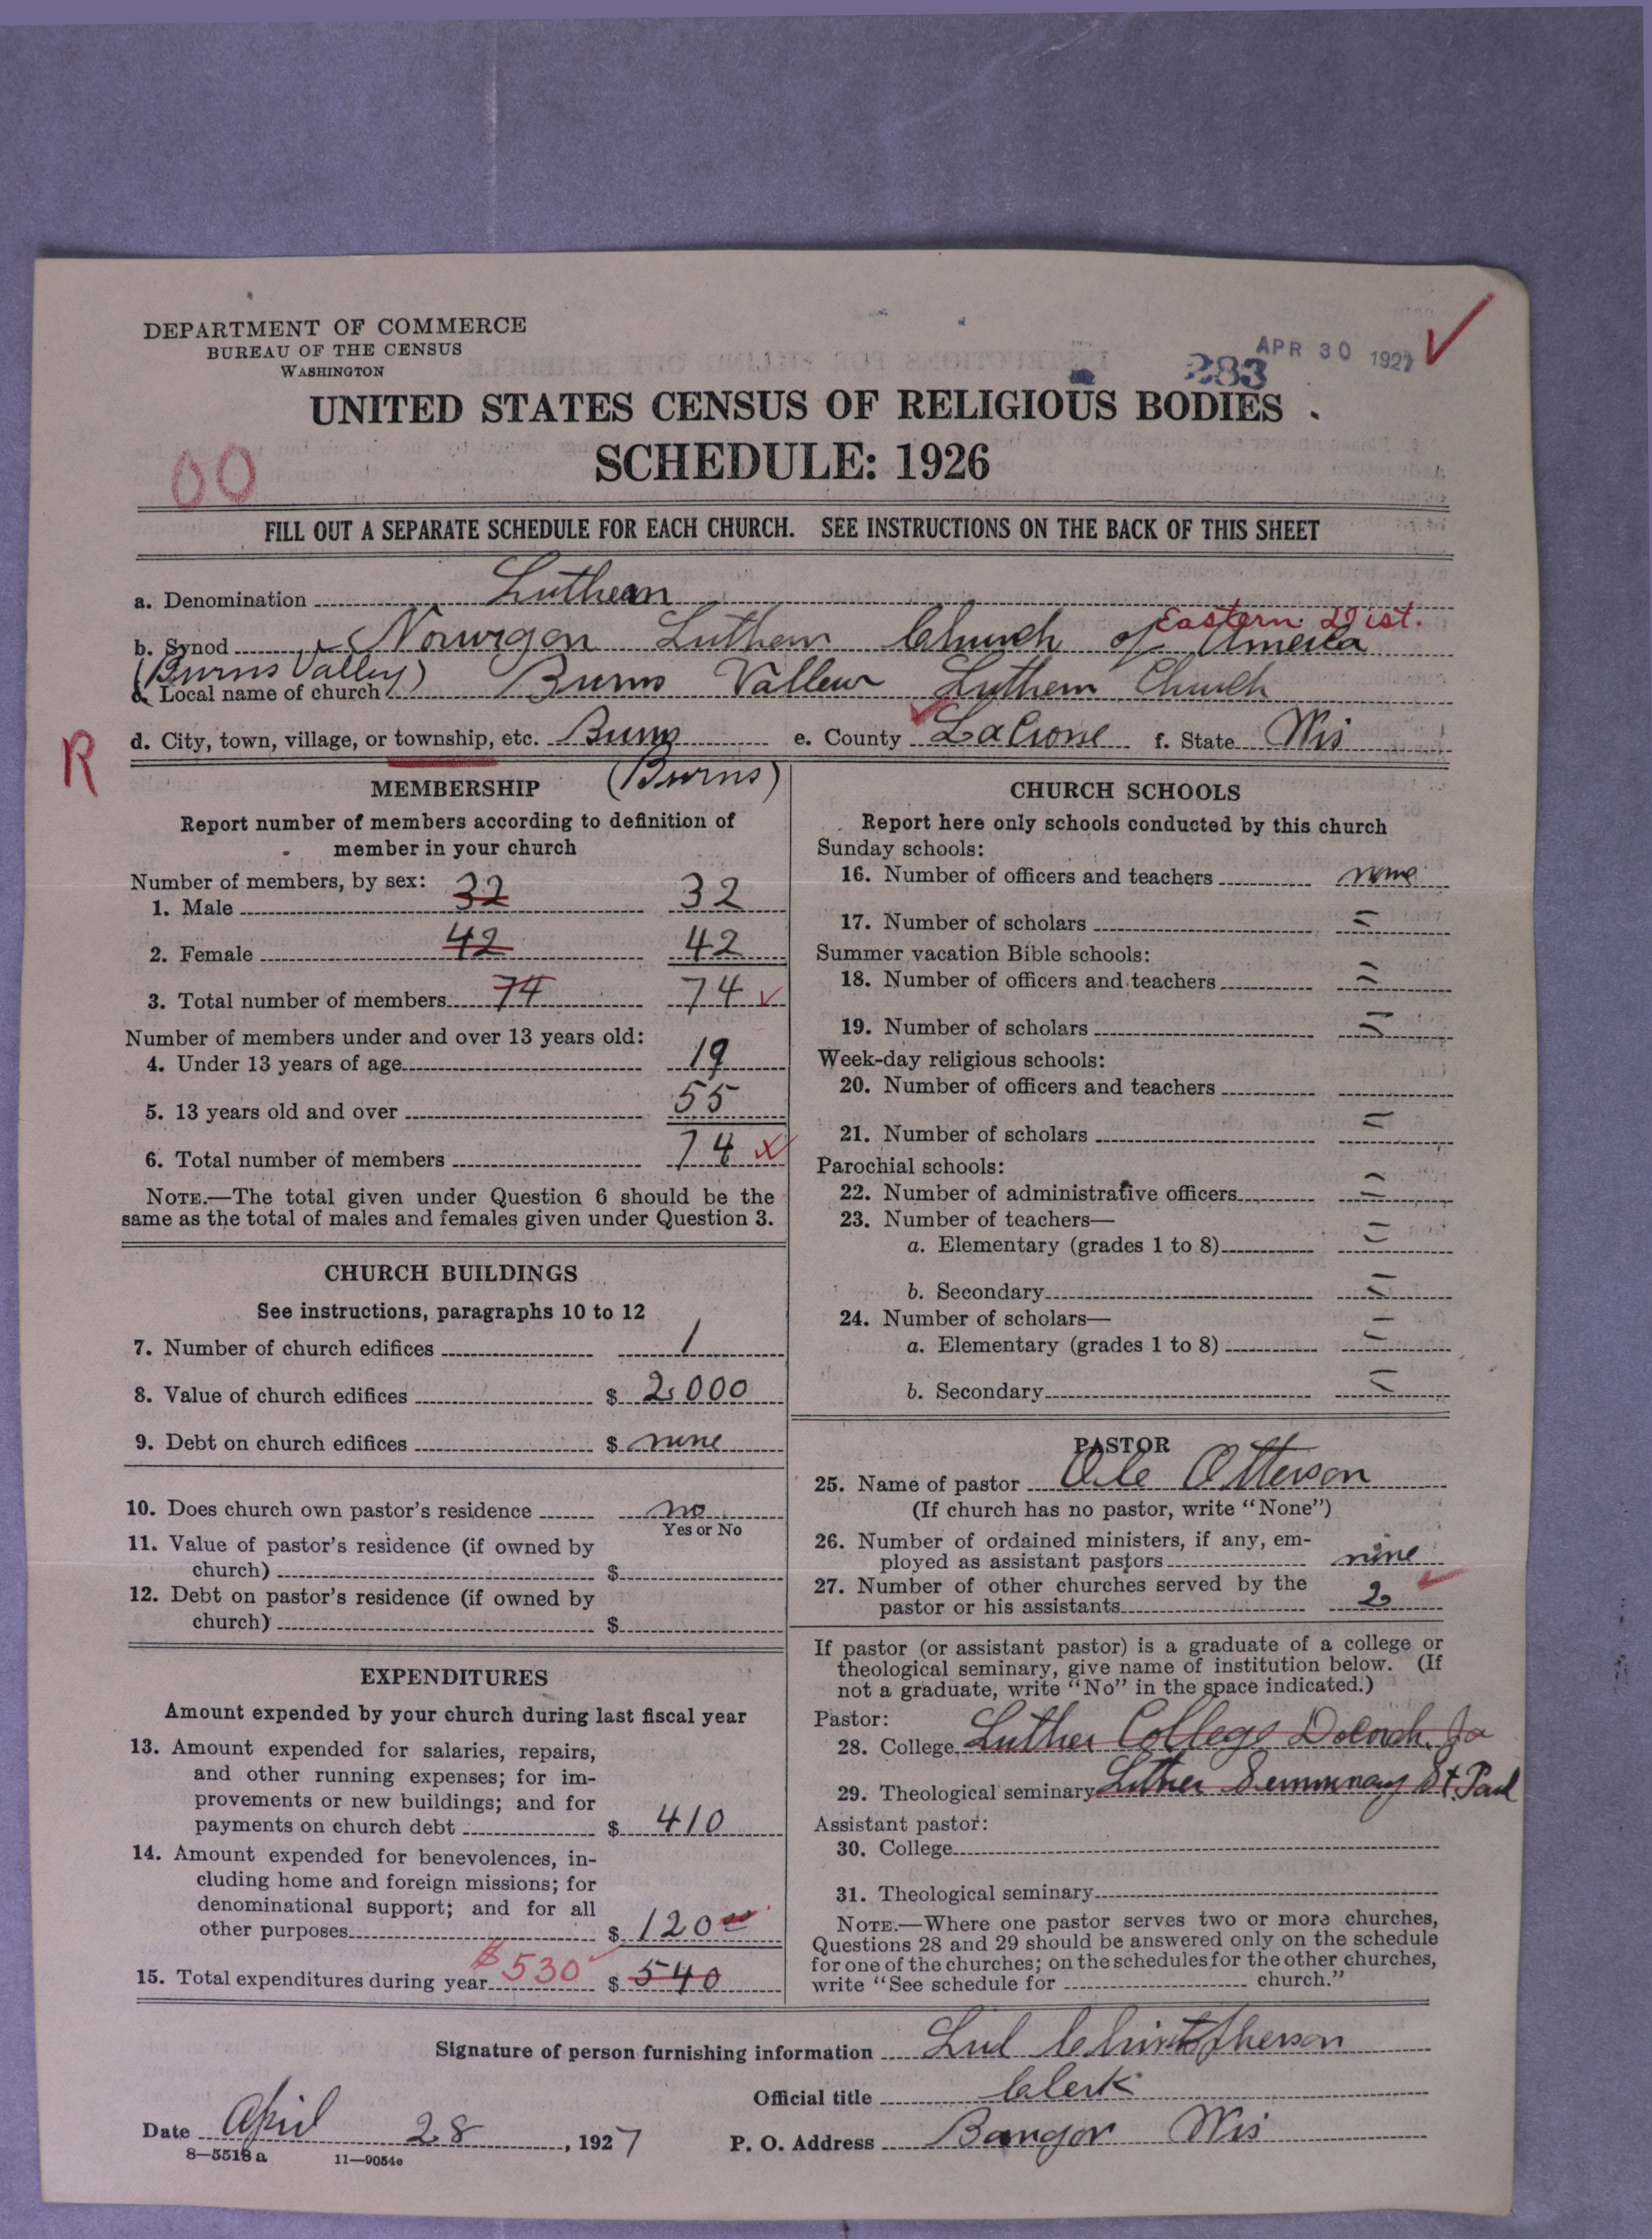 DEPARTMENT OF COMMERCE
BUREAU OF THE CENSUS
WASHINGTON
APR 30 1927
283
UNITED STATES CENSUS OF RELIGIOUS BODIES
SCHEDULE: 1926
00
FILL OUT A SEPARATE SCHEDULE FOR EACH CHURCH. SEE INSTRUCTIONS ON THE BACK OF THIS SHEET
a. Denomination Luthean
Eastern Dist.
b. Synod Norwigen Luthern Church of America
(Burns Valley)
c. Local name of church Burns Valley Luthern Church
d. City, town, village, or township, etc. Burns e. County LaCrosse f. State Wis
R
(Burns)
MEMBERSHIP
Report number of members according to definition of
member in your church
Number of members, by sex:
1. Male 32 32
2. Female 42 42
3. Total number of members 74 74
Number of members under and over 13 years old:
4. Under 13 years of age 19
5. 13 years old and over 55
6. Total number of members 74
NOTE.—The total given under Question 6 should be the
same as the total of males and females given under Question 3.
CHURCH BUILDINGS
See instructions, paragraphs 10 to 12
7. Number of church edifices 1
8. Value of church edifices $ 2,000
9. Debt on church edifices $ none
10. Does church own pastor's residence no
Yes or No
11. Value of pastor's residence (if owned by
church) $
12. Debt on pastor's residence (if owned by
church) $
EXPENDITURES
Amount expended by your church during last fiscal year
13. Amount expended for salaries, repairs,
and other running expenses; for im-
provements or new buildings; and for
payments on church debt $ 410
14. Amount expended for benevolences, in-
cluding home and foreign missions; for
denominational support; and for all
other purposes $ 120 00
15. Total expenditures during year $530 $ 540
CHURCH SCHOOLS
Report here only schools conducted by this church
Sunday schools:
16. Number of officers and teachers none
17. Number of scholars =
Summer vacation Bible schools:
18. Number of officers and teachers =
19. Number of scholars =
Week-day religious schools:
20. Number of officers and teachers
21. Number of scholars =
Parochial schools:
22. Number of administrative officers =
23. Number of teachers—
a. Elementary (grades 1 to 8) =
b. Secondary =
24. Number of scholars—
a. Elementary (grades 1 to 8) =
b. Secondary =
PASTOR
25. Name of pastor Ole Otterson
(If church has no pastor, write "None")
26. Number of ordained ministers, if any, em-
ployed as assistant pastors none
27. Number of other churches served by the
pastor or his assistants 2
If pastor (or assistant pastor) is a graduate of a college or
theological seminary, give name of institution below. (If
not a graduate, write "No" in the space indicated.)
Pastor:
28. College Luther College Decorah, Ia
29. Theological seminary Luther Seminary St. Paul
Assistant pastor:
30. College
31. Theological seminary
NOTE.—Where one pastor serves two or more churches,
Questions 28 and 29 should be answered only on the schedule
for one of the churches; on the schedules for the other churches,
write "See schedule for church."
Signature of person furnishing information Christopherson
Official title Clerk
Date April 28, 1927 P. O. Address Bangor Wis
8—5518 a 11—9054e